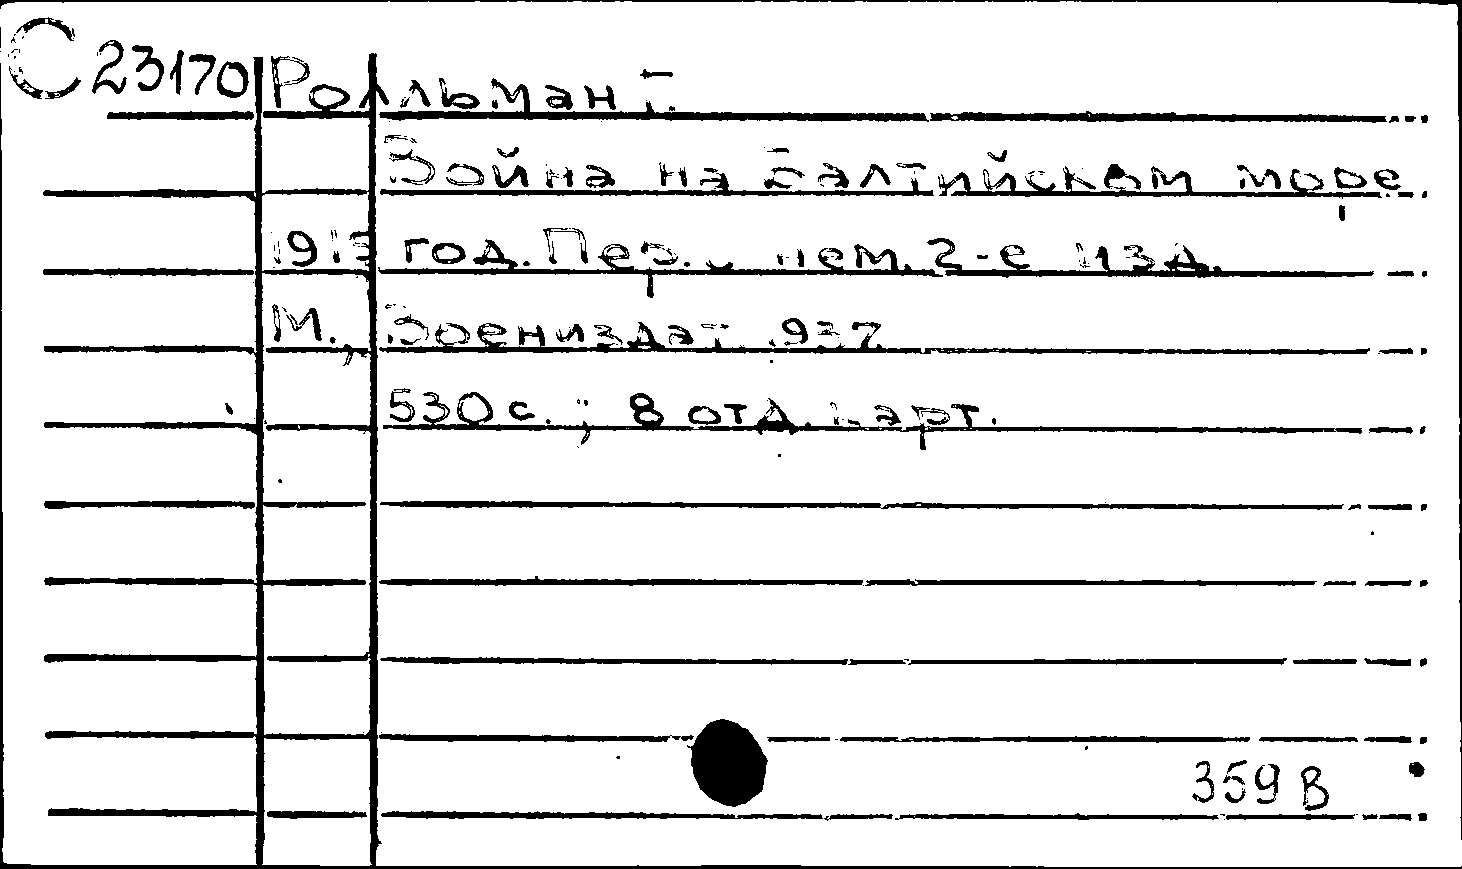 С 23170 Ролльман Г.
Война на Балтийском море.
1915 год. Пер. с нем. 2-е изд.
М., Воениздат, 1937.
530 с. ; 8 отд. карт.
359 В